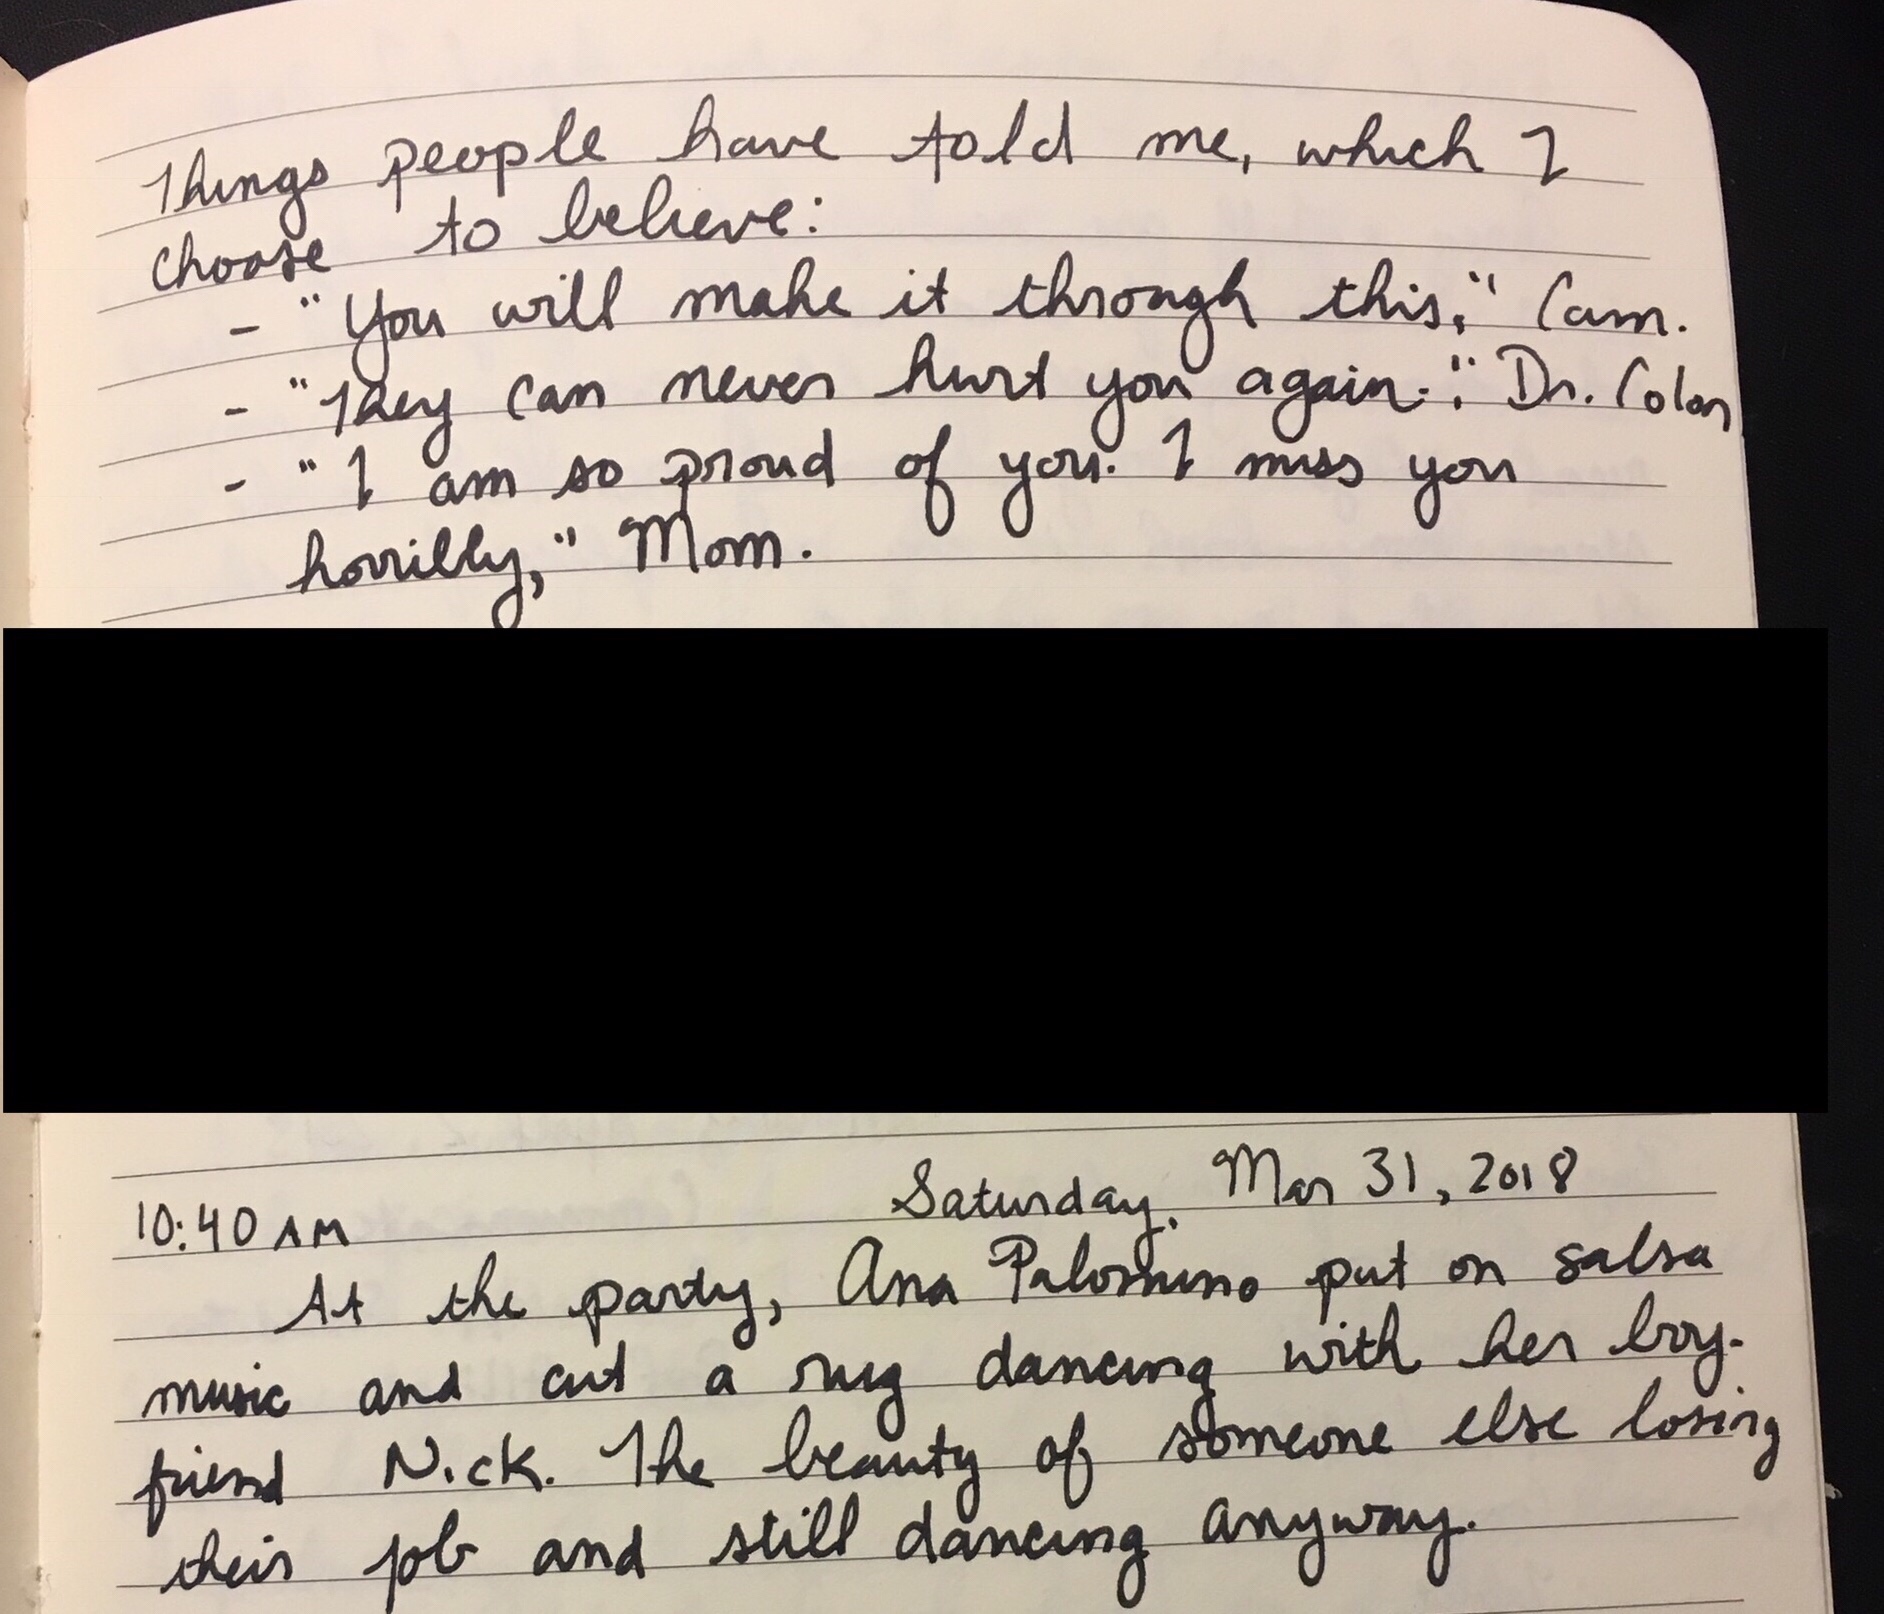 Things people have told me, which I
choose to believe:
- "You will make it through this," Cam.
- "They can never hurt you again." Dr. Colon
- "I am so proud of you. I miss you
horribly," Mom.
10:40 AM Saturday, Mar 31, 2018
At the party, Ana Palomino put on salsa
music and cut a rug dancing with her boy-
friend Nick. The beauty of someone else losing
their job and still dancing anyway.